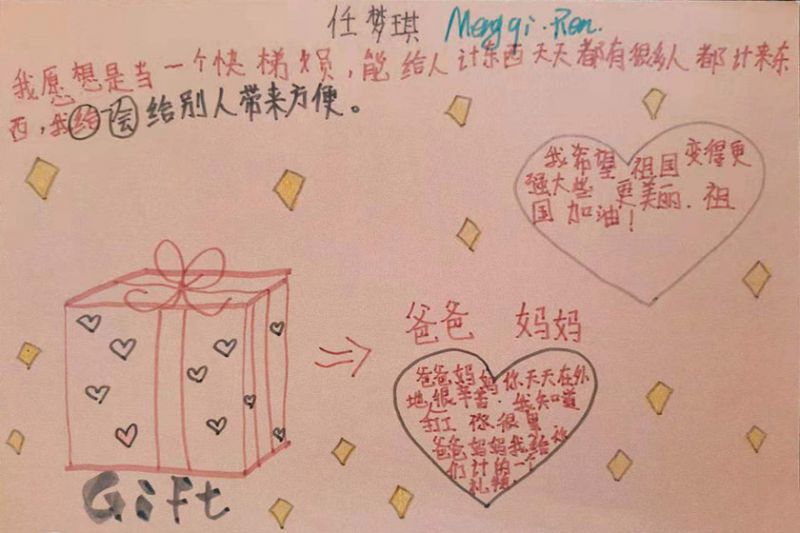 任梦琪 Mengqi.Ren.
我愿想是当一个快梯员,能给人计东西天天都有很多人都计来东
西,我给会给别人带来方便。
我希望 祖国变得更
强大些 更美丽.祖
国加油!
爸爸 妈妈
爸爸妈妈你天天在外
地很辛苦.我知道
打工 你很累
爸爸妈妈我给你
们计的一个
礼物
Gift